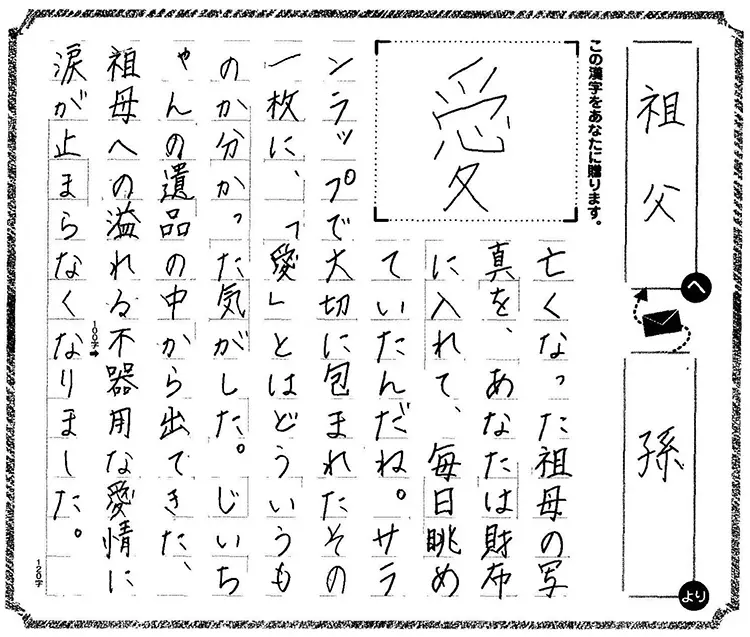 祖父
へ
孫
より
この漢字をあなたに贈ります。
愛
亡くなった祖母の写
真を、あなたは財布
に入れて、毎日眺め
ていたんだね。サラ
ンラップで大切に包まれたその
一枚に、「愛」とはどういうも
のか分かった気がした。じいち
ゃんの遺品の中から出てきた、
祖母への溢れる不器用な愛情に
100字
涙が止まらなくなりました。
120字